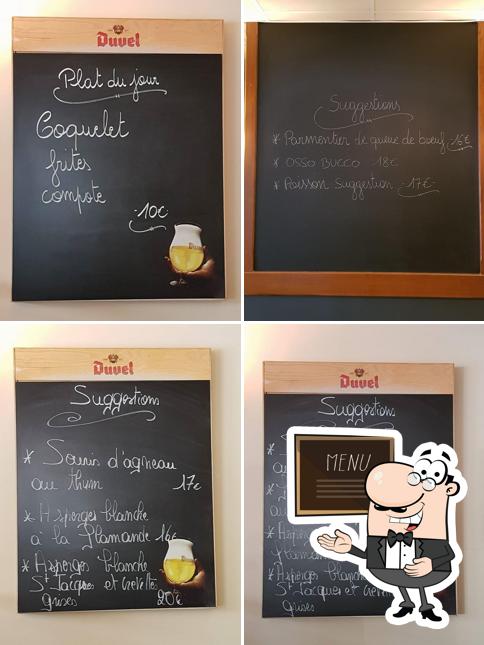 Duvel
Plat du jour
Coquelet
frites
compote
-10€
Suggestions
* Parmentier de queue de boeuf -16€
* OSSO BUCCO 18€
* Poisson Suggestion -17€-
Duvel
Suggestions
* Souris d'agneau
au thym 17€
* Asperges blanche
à la flamande 16€
* Asperges blanche
St Jacques et crevettes
grises 20€
Duvel
Suggestions
MENU
* Asperges blanche
St Jacques et
grises